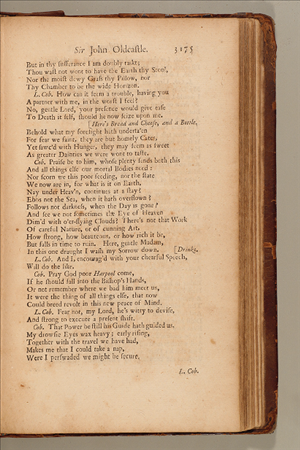 Sir John Oldcastle. 3175
But in thy sufferance I am doubly taskt;
Thou wast not wont to have the Earth thy Stool,
Nor the moist dewy Grass thy Pillow, nor
Thy Chamber to be the wide Horizon.
L. Cob. How can it seem a trouble, having you
A partner with me, in the worst I feel?
No, gentle Lord, your presence would give ease
To Death it self, should he now seize upon me.
[Here's Bread and Cheese, and a Bottle.
Behold what my foresight hath underta'en
For fear we faint, they are but homely Cates,
Yet sawc'd with Hunger, they may seem as sweet
As greater Dainties we were wont to taste.
Cob. Praise be to him, whose plenty sends both this
And all things else our mortal Bodies need:
Nor scorn we this poor feeding, nor the state
We now are in, for what is it on Earth,
Nay under Heav'n, continues at a stay?
Ebbs not the Sea, when it hath overflown?
Follows not darkness, when the Day is gone?
And see we not sometimes the Eye of Heaven
Dim'd with o'er-flying Clouds? There's not that Work
Of careful Nature, or of cunning Art,
How strong, how beauteous, or how rich it be,
But falls in time to ruin. Here, gentle Madam,
In this one draught I wash my Sorrow down. [Drinks.
L. Cob. And I, encourag'd with your chearful Speech,
Will do the like.
Cob. Pray God poor Harpool come,
If he should fall into the Bishop's Hands,
Or not remember where we bad him meet us,
It were the thing of all things else, that now
Could breed revolt in this new peace of Mind.
L. Cob. Fear not, my Lord, he's witty to devise,
And strong to execute a present shift.
Cob. That Power be still his Guide hath guided us.
My drowsie Eyes wax heavy; early rising,
Together with the travel we have had,
Makes me that I could take a nap,
Were I perswaded we might be secure.
L. Cob.